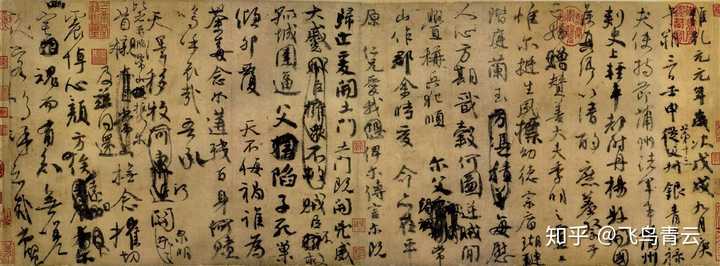 維乾元元年歲次戊戌九月庚
午朔三日壬申第十三叔銀青光祿
夫使持節蒲州諸軍事蒲州
刺史上輕車都尉丹楊縣開國
侯真卿以清酌庶羞祭于
亡姪贈贊善大夫季明之靈
惟爾挺生夙標幼德宗廟瑚璉
階庭蘭玉每慰
人心方期戩穀何圖逆賊閒
釁稱兵犯順 爾父竭誠常
山作郡余時受命亦在平
原仁兄愛我俾爾傳言爾既
歸止爰開土門土門既開凶威
大蹙賊臣不救
孤城圍逼父陷子死巢
傾卵覆 天不悔禍誰為
荼毒念爾遘殘百身何贖
嗚呼哀哉吾承
天澤移牧河關泉明
比者再陷常山攜爾
首櫬及茲同還撫念摧切
震悼心顏方俟遠日
卜爾幽宅魂而有知無嗟
久客嗚呼哀哉尚饗
知乎 @飞鸟青云